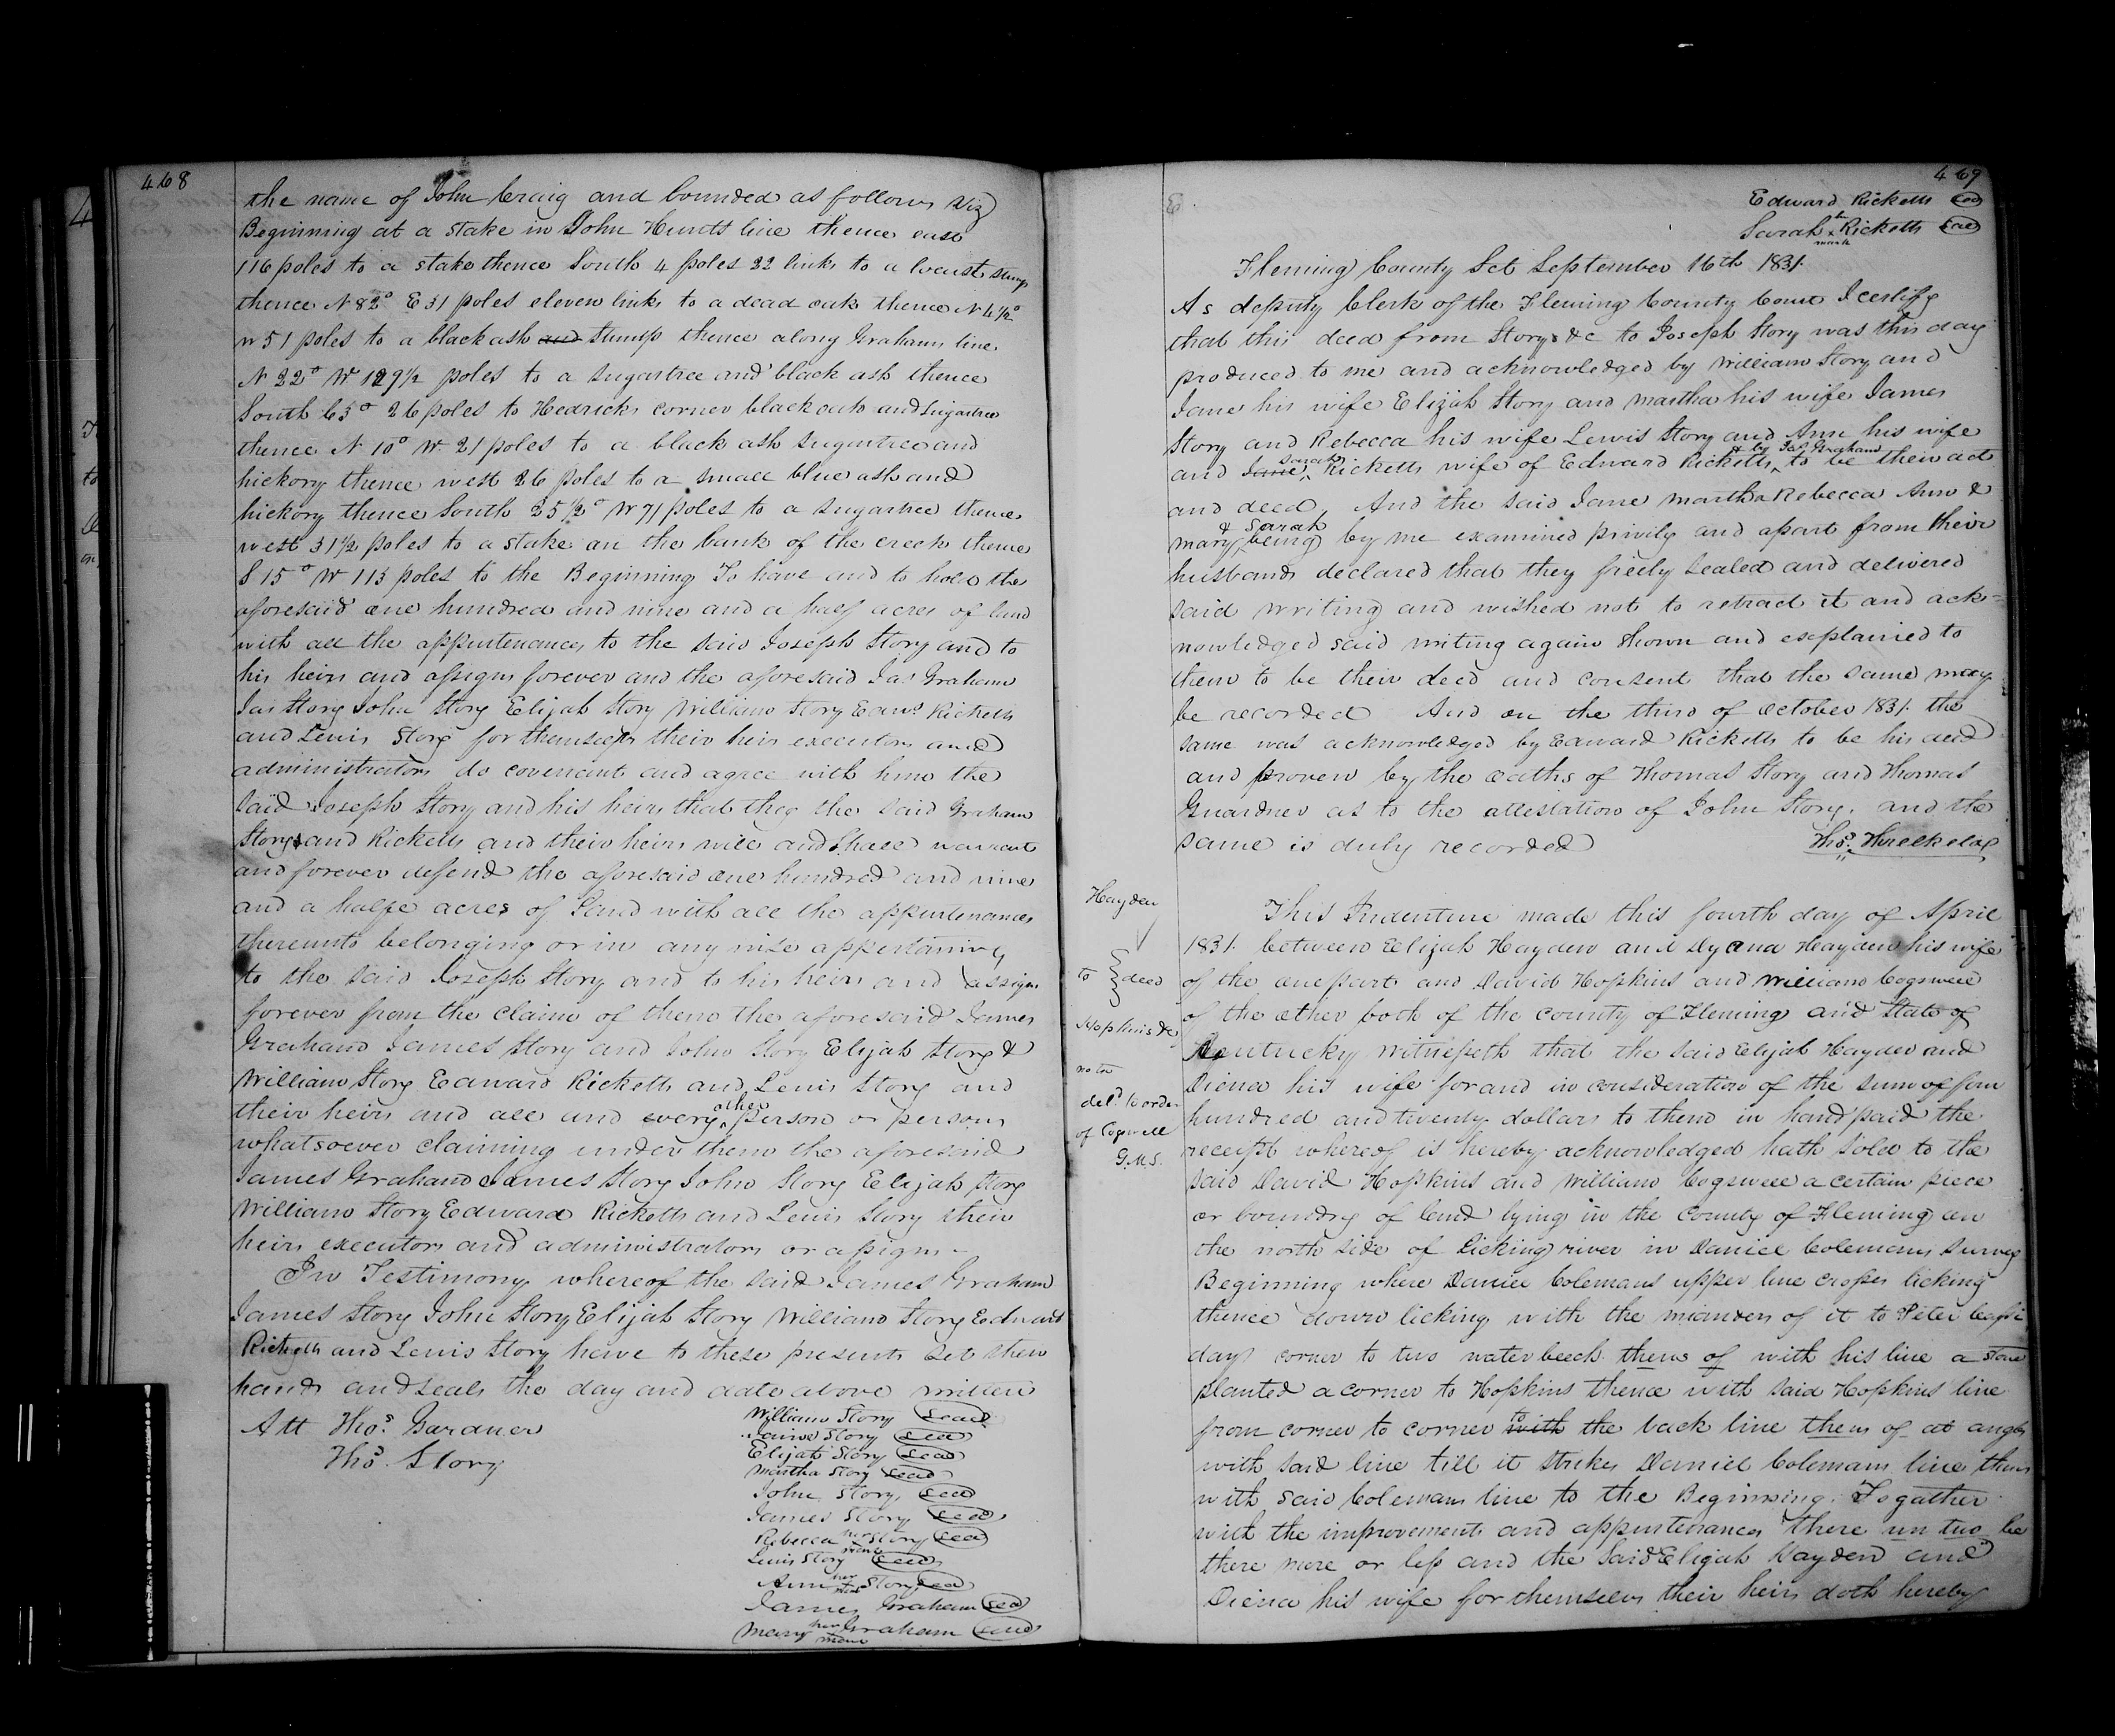 468
the name of John Craig and bounded as follows Viz
Beginning at a stake in John Hurtts line thence east
116 poles to a stake thence South 4 poles 22 links to a locust stump
thence N 82° E 31 poles eleven links to a dead oak thence N 4½°
W 51 poles to a black ash and stump thence along Grahams line
N 22° W 129½ poles to a sugartree and black ash thence
South 65° 26 poles to Hedricks corner black oak and sugartree
thence N 10° W. 21 poles to a black ash sugartree and
hickory thence west 26 poles to a small blue ash and
hickory thence South 25½° W 71 poles to a sugartree thence
west 31½ poles to a stake on the bank of the creek thence
S 15° W 113 poles to the Beginning To have and to hold the
aforesaid one hundred and nine and a half acres of land
with all the appurtenances to the said Joseph Story and to
his heirs and assigns forever and the aforesaid Jas Graham
Jas Story John Story Elijah Story William Story Edwd Ricketts
and Lewis Story for themselves their heirs executors and
administrators do covenant and agree with him the
said Joseph Story and his heirs that they the said Graham
Storys and Ricketts and their heirs will and shall warrant
and forever defend the aforesaid one hundred and nine
and a halfe acres of Land with all the appurtenances
thereunto belonging or in any wise appertaining
to the said Joseph Story and to his heirs and assigns
forever from the claim of them the aforesaid James
Graham James Story and John Story Elijah Story &
William Story Edward Ricketts and Lewis Story and
their heirs and all and every other person or persons
whatsoever claiming under them the aforesaid
James Graham James Story John Story Elijah Story
William Story Edward Ricketts and Lewis Story their
heirs executors and administrators or assigns -
In Testimony whereof the said James Graham
James Story John Story Elijah Story William Story Edward
Ricketts and Lewis Story have to these presents set their
hands and seals the day and date above written
Att Thos. Gardner
Thos. Story
William Story seal
Jane Story seal
Elijah Story seal
Martha Story seal
John Story seal
James Story seal
Rebecca her mark Story seal
Lewis Story seal
Ann her mark Story seal
James Graham seal
Mary her mark Graham seal
469
Edward Ricketts seal
Sarah her x mark Ricketts seal
Fleming County Sct September 16th 1831.
As deputy Clerk of the Fleming County Court I certify
that this deed from Storys &c to Joseph Story was this day
produced to me and acknowledged by William Story and
Jane his wife Elijah Story and Martha his wife James
Story and Rebecca his wife Lewis Story and Ann his wife
and Jane Sarah Ricketts wife of Edward Ricketts & by Jas Graham to be their act
and deed, And the said Jane Martha Rebecca Ann &
Mary & Sarah being by me examined privily and apart from their
husbands declared that they freely sealed and delivered
said writing and wished not to retract it and ack=
nowledged said writing again shown and explained to
them to be their deed and consent that the same may
be recorded And on the third of October 1831. the
same was acknowledged by Edward Ricketts to be his deed
and proven by the oaths of Thomas Story and Thomas
Guardner as to the attestation of John Story, and the
same is duly recorded
Thos. Threlkeld
Hayden
to } deed
Hopkins &c
deld. to order
of Cogswell
G.M.S.
This Indenture made this fourth day of April
1831. between Elijah Hayden and Dyana Hayden his wife
of the one part and David Hopkins and William Cogswell
of the other both of the county of Fleming and State of
Kentucky Witnesseth that the said Elijah Hayden and
Diena his wife for and in consideration of the sum of four
hundred and twenty dollars to them in hand paid the
receipt whereof is hereby acknowledged hath sold to the
said David Hopkins and William Cogswell a certain piece
or boundry of land lying in the County of Fleming on
the north side of Licking river in Daniel Colemans survey
Beginning where Daniel Colemans upper line crosses licking
thence down licking with the mianders of it to Peter
days corner to two water beech thens of with his line a stone
planted a corner to Hopkins thence with said Hopkins line
from corner to corner with to the back line thens of at angles
with said line till it strikes Daniel Colemans line thens
with said Colemans line to the Beginning. Togather
with the improvements and appurtenances there un too be
there more or less and the said Elijah Hayden and
Diena his wife for themselves their heirs doth hereby